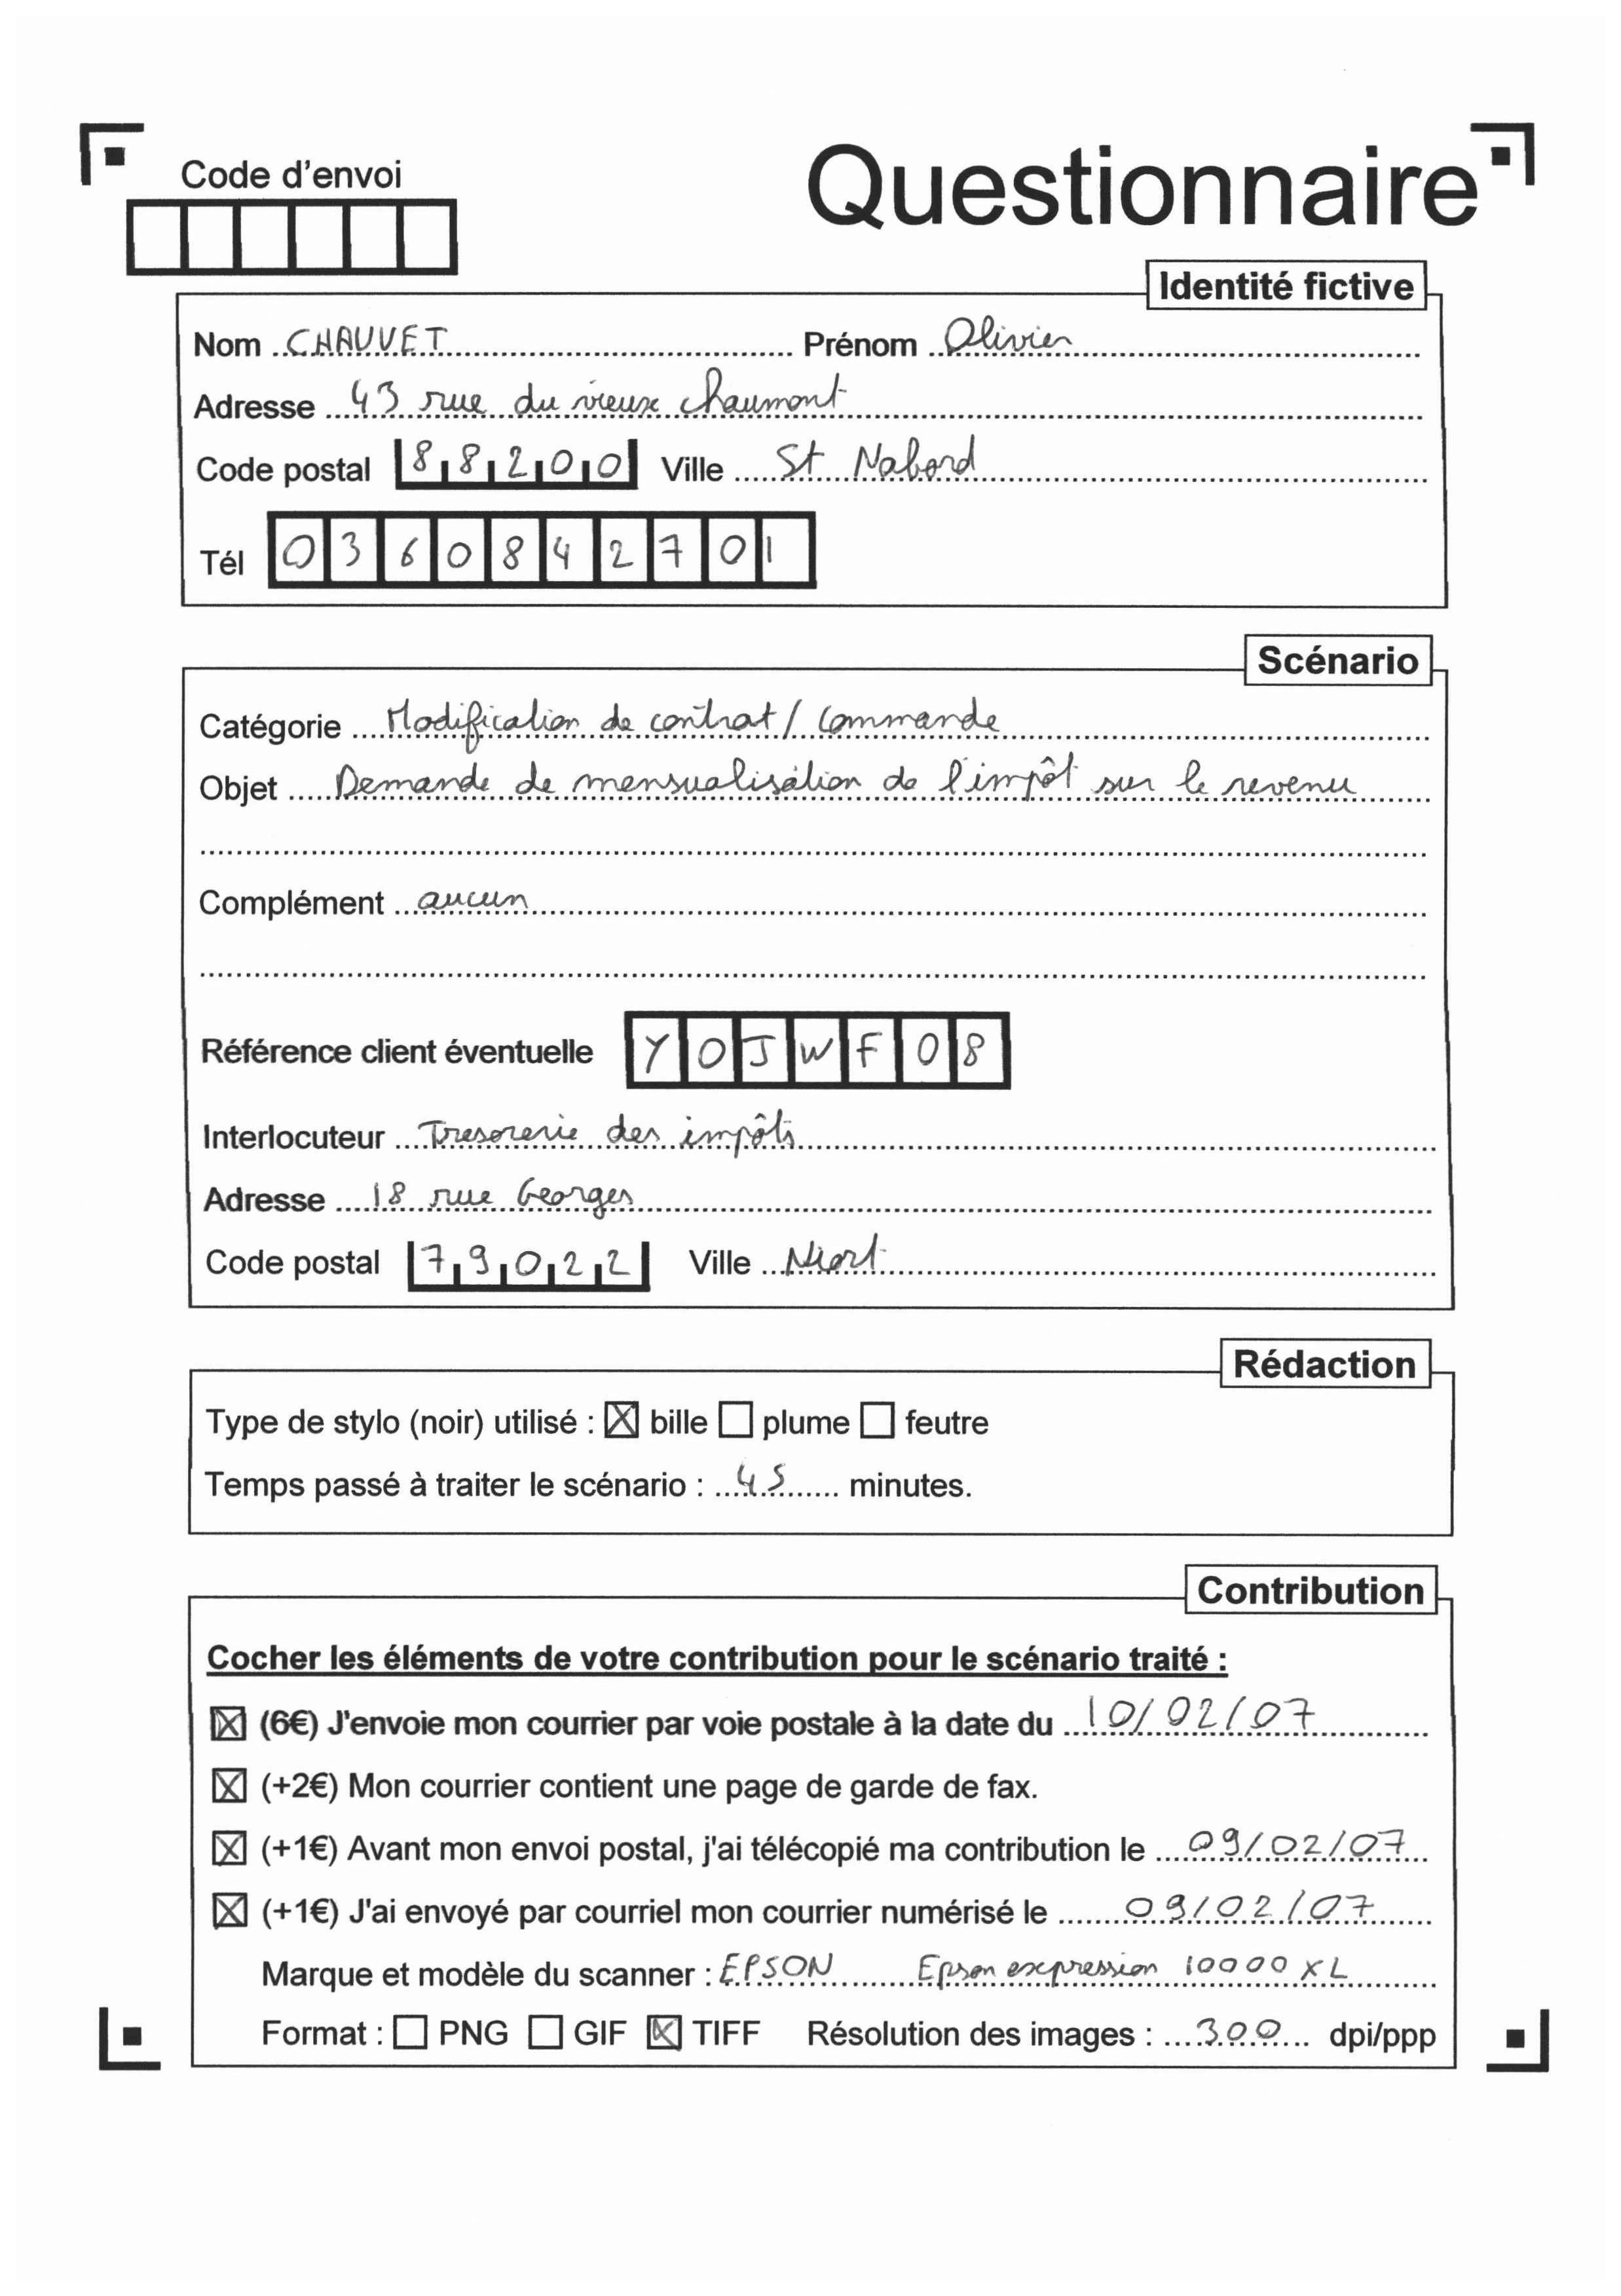 Code d'envoi
Questionnaire
Identité fictive
Nom CHAUVET Prénom Olivier
Adresse 43 rue du vieux chaumont
Code postal 88200 Ville St Nabord
Tél 0360842701
Scénario
Catégorie Modification de contrat / commande
Objet Demande de mensualisation de l'impôt sur le revenu
Complément aucun
Référence client éventuelle YOJWF08
Interlocuteur Tresorerie des impôts
Adresse 18 rue Georges
Code postal 79022 Ville Niort
Rédaction
Type de stylo (noir) utilisé : ☒ bille ☐ plume ☐ feutre
Temps passé à traiter le scénario : 45 minutes.
Contribution
Cocher les éléments de votre contribution pour le scénario traité :
☒ (6€) J'envoie mon courrier par voie postale à la date du 10/02/07
☒ (+2€) Mon courrier contient une page de garde de fax.
☒ (+1€) Avant mon envoi postal, j'ai télécopié ma contribution le 09/02/07
☒ (+1€) J'ai envoyé par courriel mon courrier numérisé le 09/02/07
Marque et modèle du scanner : EPSON Epson expression 10000 XL
Format : ☐ PNG ☐ GIF ☒ TIFF Résolution des images : 300 dpi/ppp